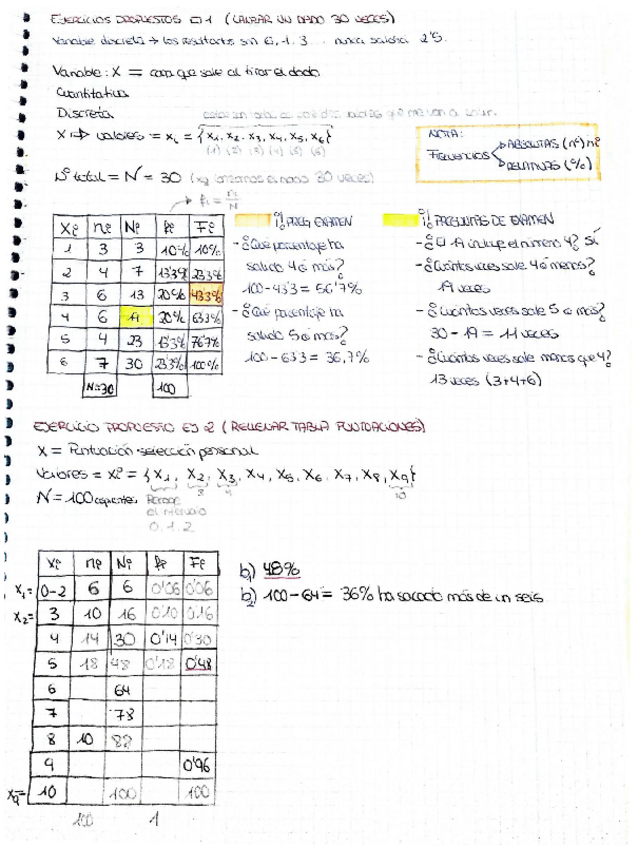 EJERCICIOS PROPUESTOS EJ 1 (LANZAR UN DADO 30 VECES)
Variable discreta → los resultados son 6, 1, 3... nunca saldrá 2'5.
Variable: X = cara que sale al tirar el dado.
Cuantitativa
Discreta
X ⇒ valores = xi = {x1, x2, x3, x4, x5, x6}
(1) (2) (3) (4) (5) (6)
NOTA:
Frecuencias
ABSOLUTAS (nº) ni
RELATIVAS (%)
Nº total = N = 30 (xq lanzamos el dado 30 veces)
fi = ni/N
Xi ni Ni fi Fi
1 3 3 10% 10%
2 4 7 13'3% 23'3%
3 6 13 20% 43'3%
4 6 19 20% 63'3%
5 4 23 13'3% 76'7%
6 7 30 23'3% 100%
N=30 100
¡! PREG EXAMEN
- ¿Qué porcentaje ha
salido 4 ó más?
100-43'3 = 56'7%
- ¿Qué porcentaje ha
salido 5 ó más?
100-63'3 = 36,7%
¡! PREGUNTAS DE EXAMEN
- ¿El 19 incluye el número 4? SÍ
- ¿Cuántas veces sale 4 ó menos?
19 veces
- ¿Cuántas veces sale 5 ó más?
30 - 19 = 11 veces
- ¿Cuántas veces sale menos que 4?
13 veces (3+4+6)
EJERCICIO PROPUESTO EJ 2 (RELLENAR TABLA PUNTUACIONES)
X = Puntuación selección personal
Valores = Xi = {X1, X2, X3, X4, X5, X6, X7, X8, X9}
8 4 10
N = 100 aspirantes
el intervalo
0, 1, 2
Xi ni Ni fi Fi
X1= 0-2 6 6 0'06 0'06
X2= 3 10 16 0'10 0'16
4 14 30 0'14 0'30
5 18 48 0'18 0'48
6 64
7 78
8 10 88
9 0'96
X9= 10 100 100
100 1
b1) 48%
b2) 100-64 = 36% ha sacado más de un seis